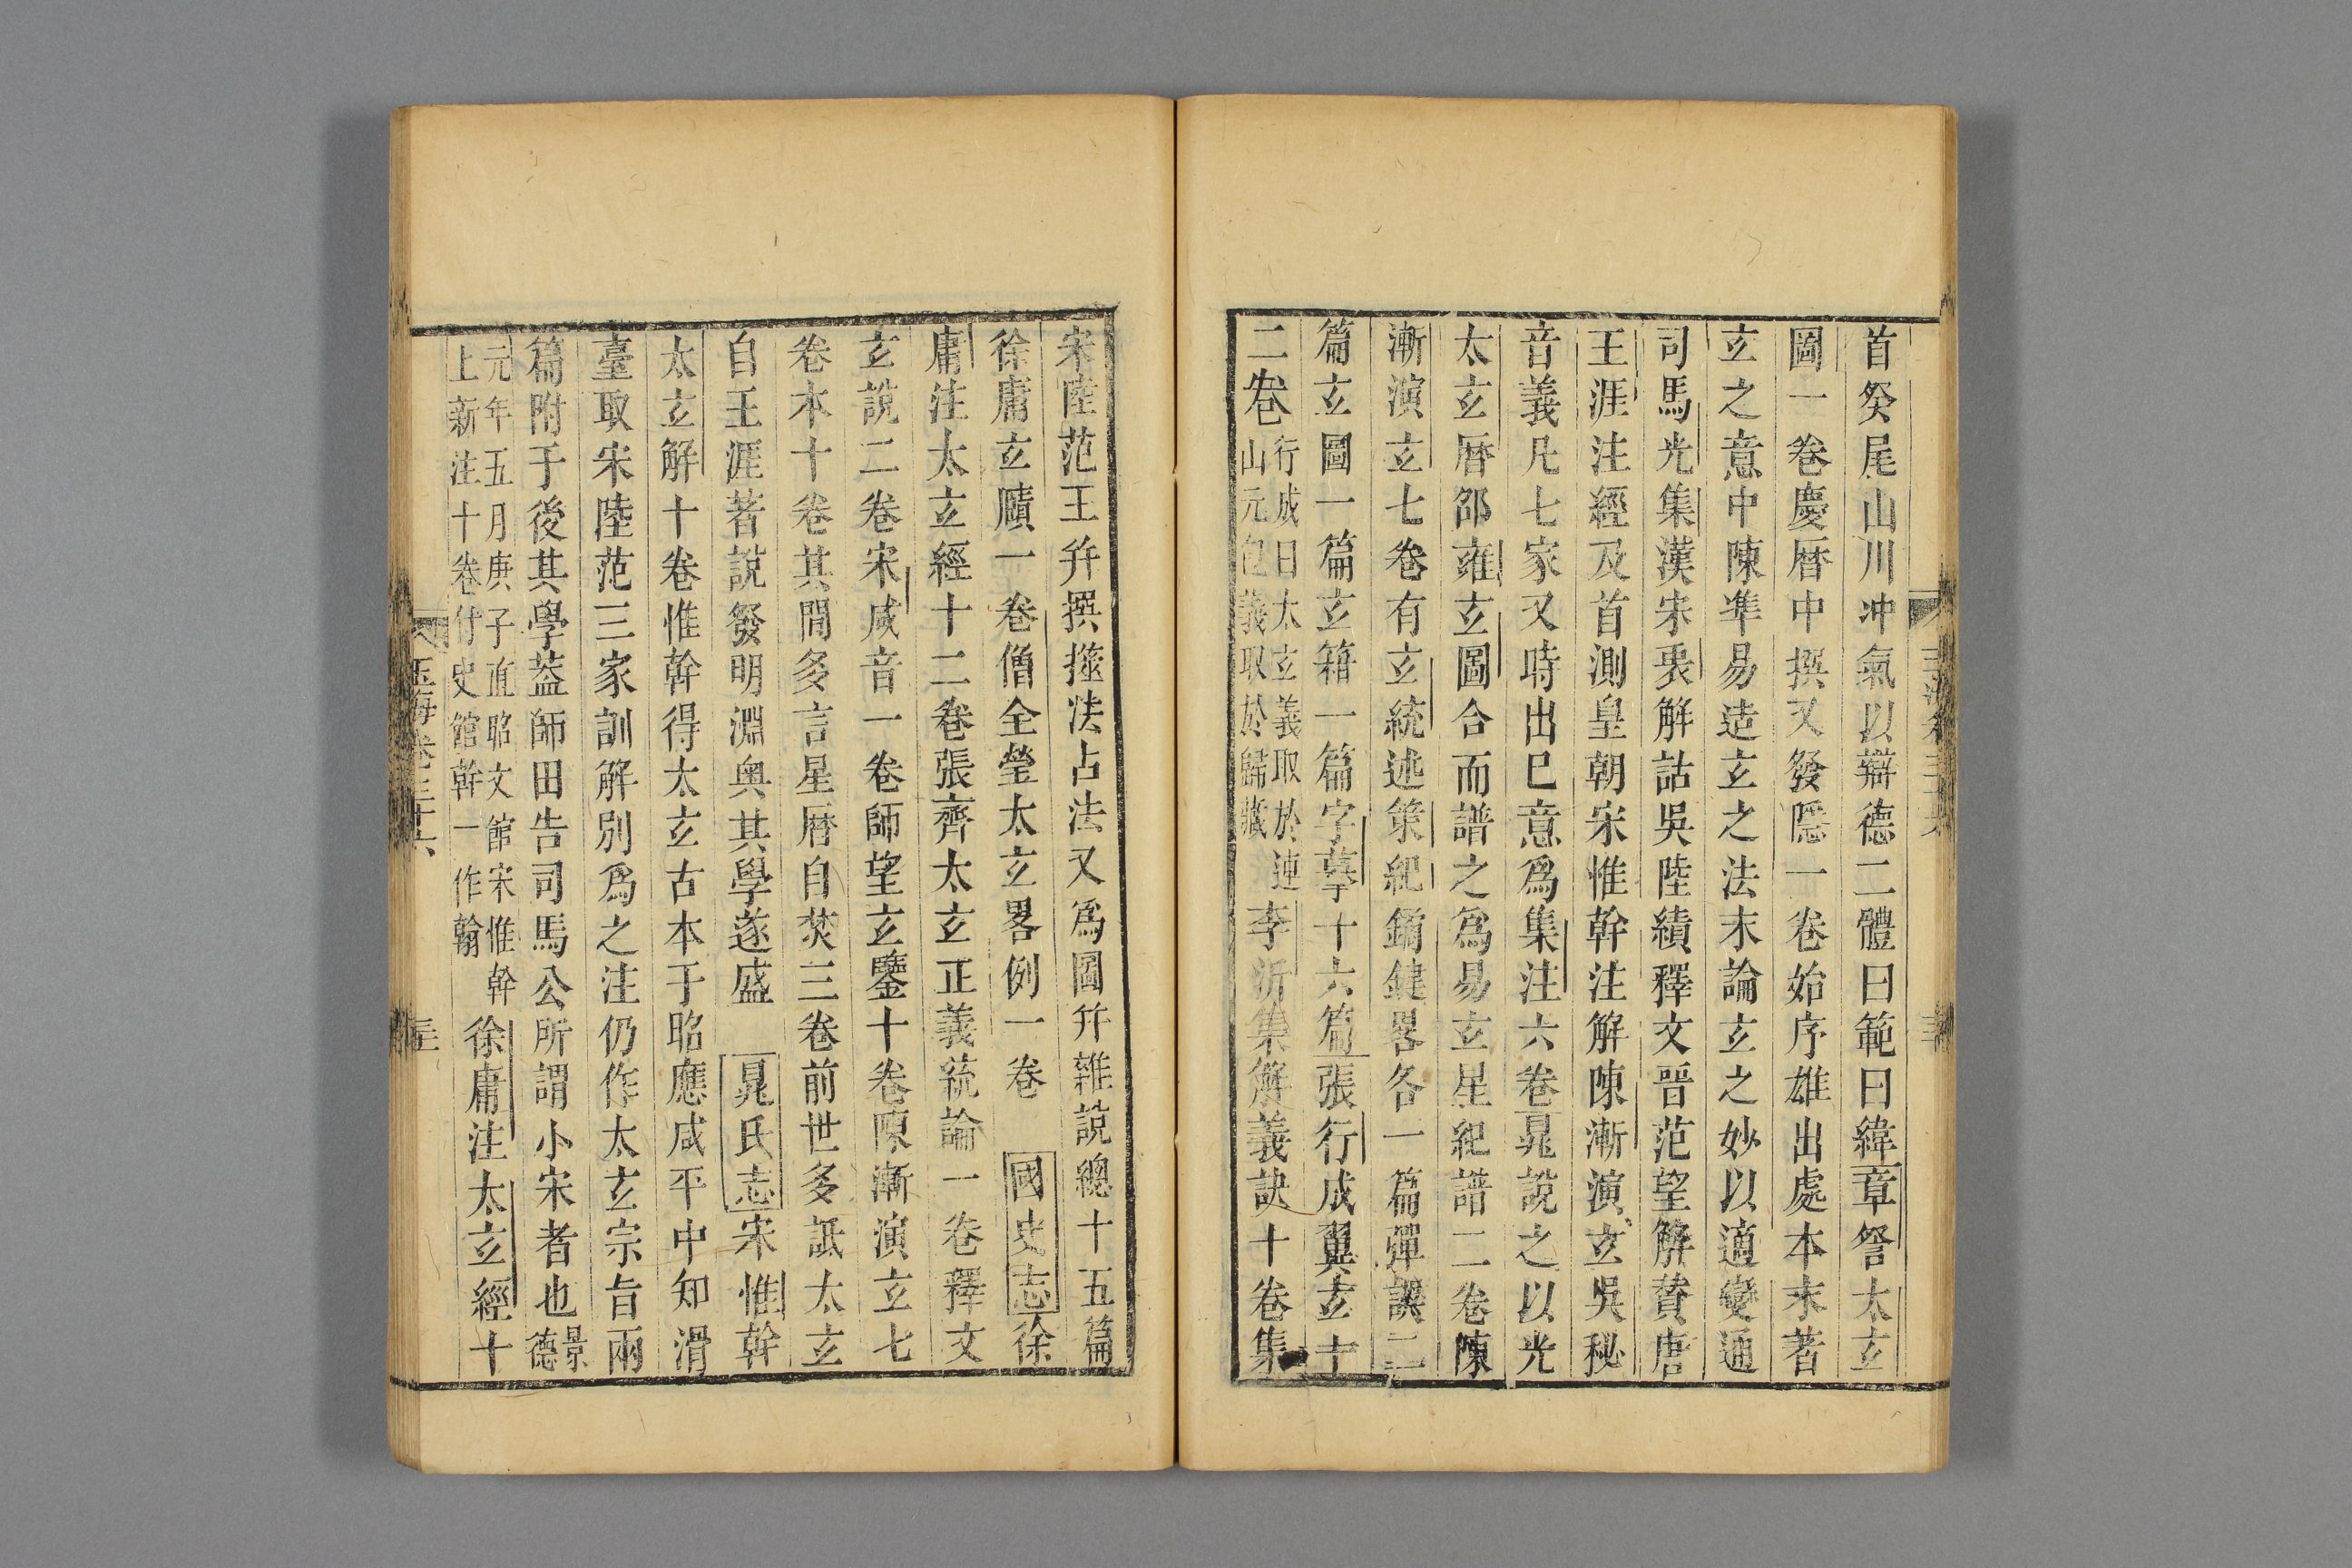 首癸尾山川冲氣以辯德二體曰範曰緯章詧太玄
圖一卷慶曆中撰又發隱一卷始序雄出處本末著
玄之意中陳準易造玄之法末論玄之妙以適變通
司馬光集漢宋衷解詁吳陸績釋文晉范望解賛唐
王涯注經及首測皇朝宋惟幹注解陳漸演玄吳秘
音義凡七家又時出巳意爲集注六卷晁說之以光
太玄曆邵雍玄圖合而譜之爲易玄星紀譜二卷陳
漸演玄七卷有玄統述策紀鑰鍵畧各一篇彈誤二
篇玄圖一篇玄籍一篇字摹十六篇張行成翼玄十
二卷行成曰太玄義取於連山元包義取於歸藏李沂集解義訣十卷集
宋陸范王并撰揲法占法又爲圖并雜說總十五篇
徐庸玄賾一卷僧全瑩太玄畧例一卷國史志徐
庸注太玄經十二卷張齊太玄正義統論一卷釋文
玄說二卷宋咸音一卷師望玄鑒十卷陳漸演玄七
卷本十卷其間多言星曆自焚三卷前世多詆太玄
自王涯著說發明淵奥其學遂盛晁氏志宋惟幹
太玄解十卷惟幹得太玄古本于昭應咸平中知滑
臺取宋陸范三家訓解別爲之注仍作太玄宗旨兩
篇附于後其學葢師田告司馬公所謂小宋者也景德
元年五月庚子直昭文館宋惟幹上新注十卷付史館幹一作翰徐庸注太玄經十
玉海卷三十六